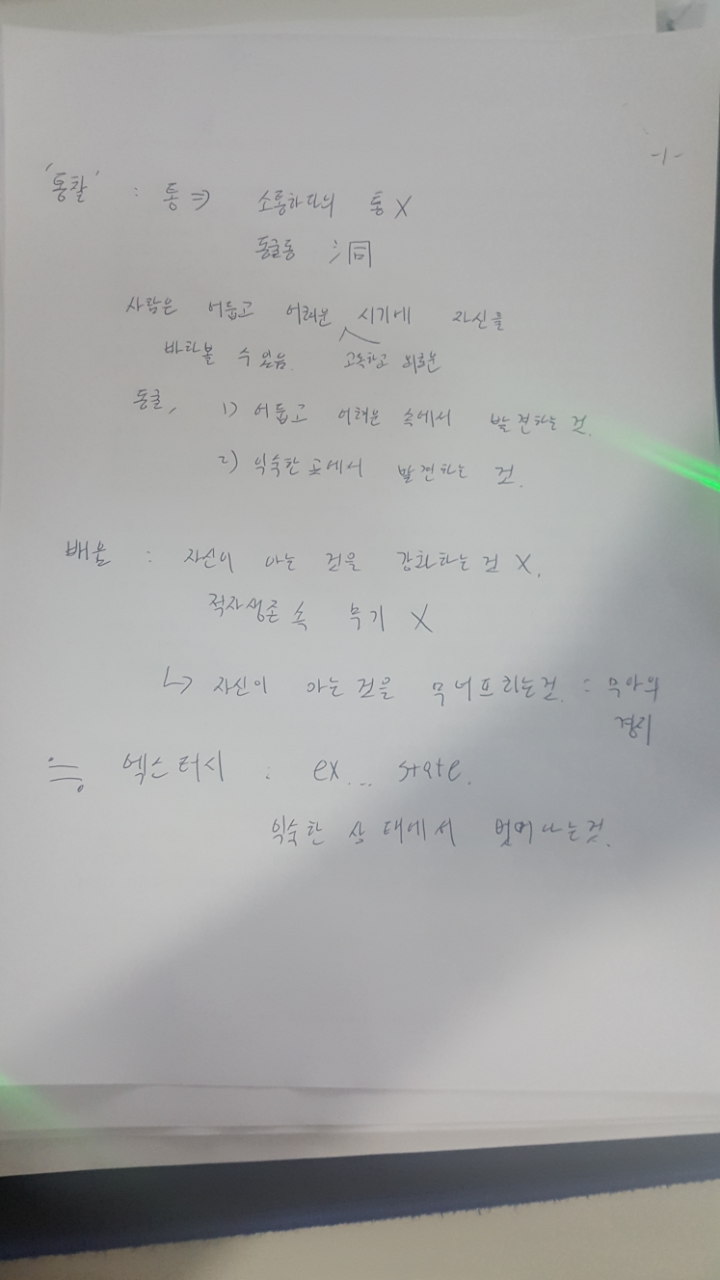 -1-
'통찰' : 통 ⇒ 소통하다의 통 X
동굴동 洞
사람은 어둡고 어려운 시기에 자신을
바라볼 수 있음. 고독하고 외로운
동굴, 1) 어둡고 어려운 속에서 발견하는 것.
2) 익숙한 곳에서 발견하는 것.
배움 : 자신이 아는 것을 강화하는 것 X.
적자생존 속 무기 X
↳ 자신이 아는 것을 무너뜨리는것. : 무아의
경지
≒ 엑스터시 : ex... state.
익숙한 상태에서 벗어나는것.